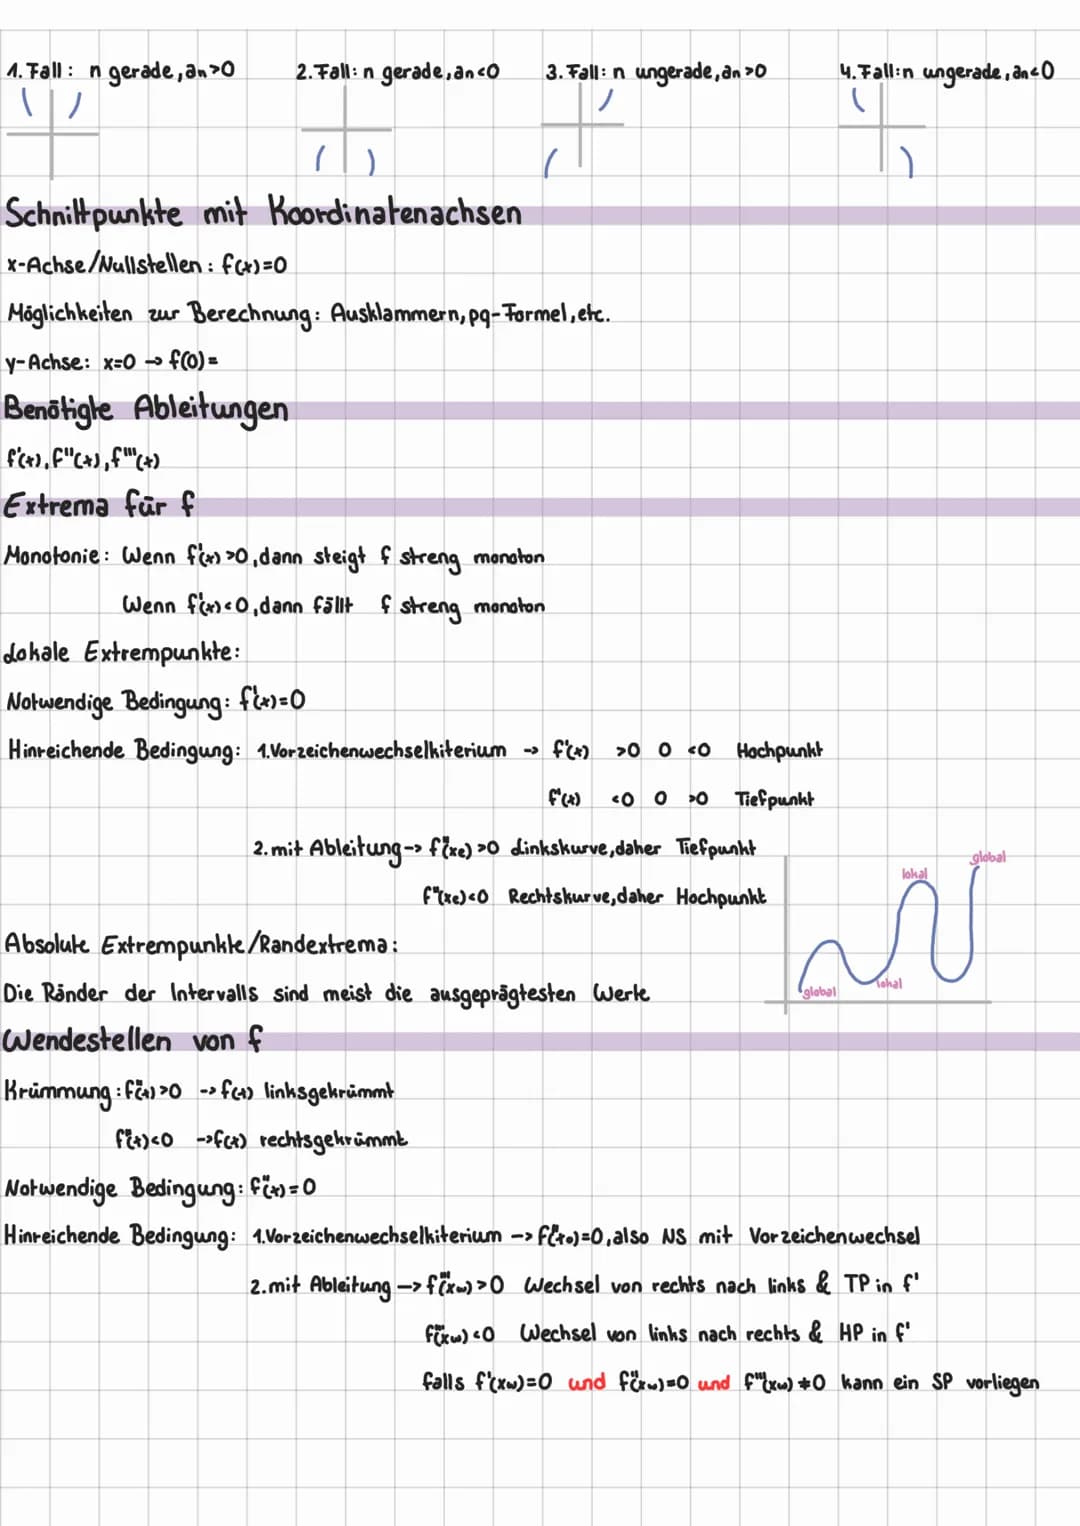 1. Fall: n gerade, an>0
2. Fall: n gerade, an<0
3. Fall: n ungerade, an>0
4. Fall: n ungerade, an<0
Schnittpunkte mit Koordinatenachsen
x-Achse/Nullstellen: f(x)=0
Möglichkeiten zur Berechnung: Ausklammern, pq-Formel, etc.
y-Achse: x=0 → f(0)=
Benötigte Ableitungen
f'(x), f''(x), f'''(x)
Extrema für f
Monotonie: Wenn f'(x)>0, dann steigt f streng monoton
Wenn f'(x)<0, dann fällt f streng monoton
Lokale Extrempunkte:
Notwendige Bedingung: f'(x)=0
Hinreichende Bedingung: 1. Vorzeichenwechselkiterium -> f'(x) >0 0 <0 Hochpunkt
f'(x) <0 0 >0 Tiefpunkt
2. mit Ableitung -> f''(xe) >0 Linkskurve, daher Tiefpunkt
f''(xe)<0 Rechtskurve, daher Hochpunkt
global
lokal
Absolute Extrempunkte/Randextrema:
Die Ränder der Intervalls sind meist die ausgeprägtesten Werte
global
lokal
Wendestellen von f
Krümmung: f''(x)>0 -> f(x) linksgekrümmt
f''(x)<0 -> f(x) rechtsgekrümmt
Notwendige Bedingung: f''(x)=0
Hinreichende Bedingung: 1. Vorzeichenwechselkiterium -> f''(x0)=0, also NS mit Vorzeichenwechsel
2. mit Ableitung -> f'''(xw) >0 Wechsel von rechts nach links & TP in f'
f'''(xw) <0 Wechsel von links nach rechts & HP in f'
falls f'(xw)=0 und f''(xw)=0 und f'''(xw) ≠0 kann ein SP vorliegen